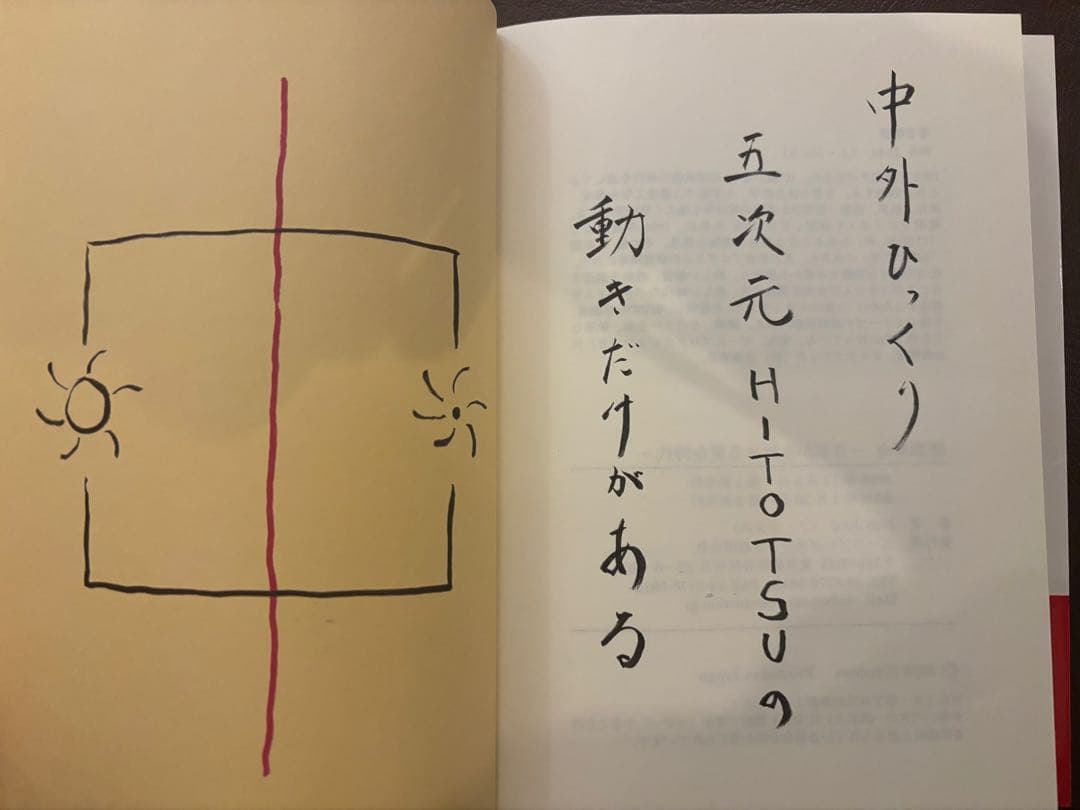 中外ひっくり
五次元HITOTSUの
動きだけがある